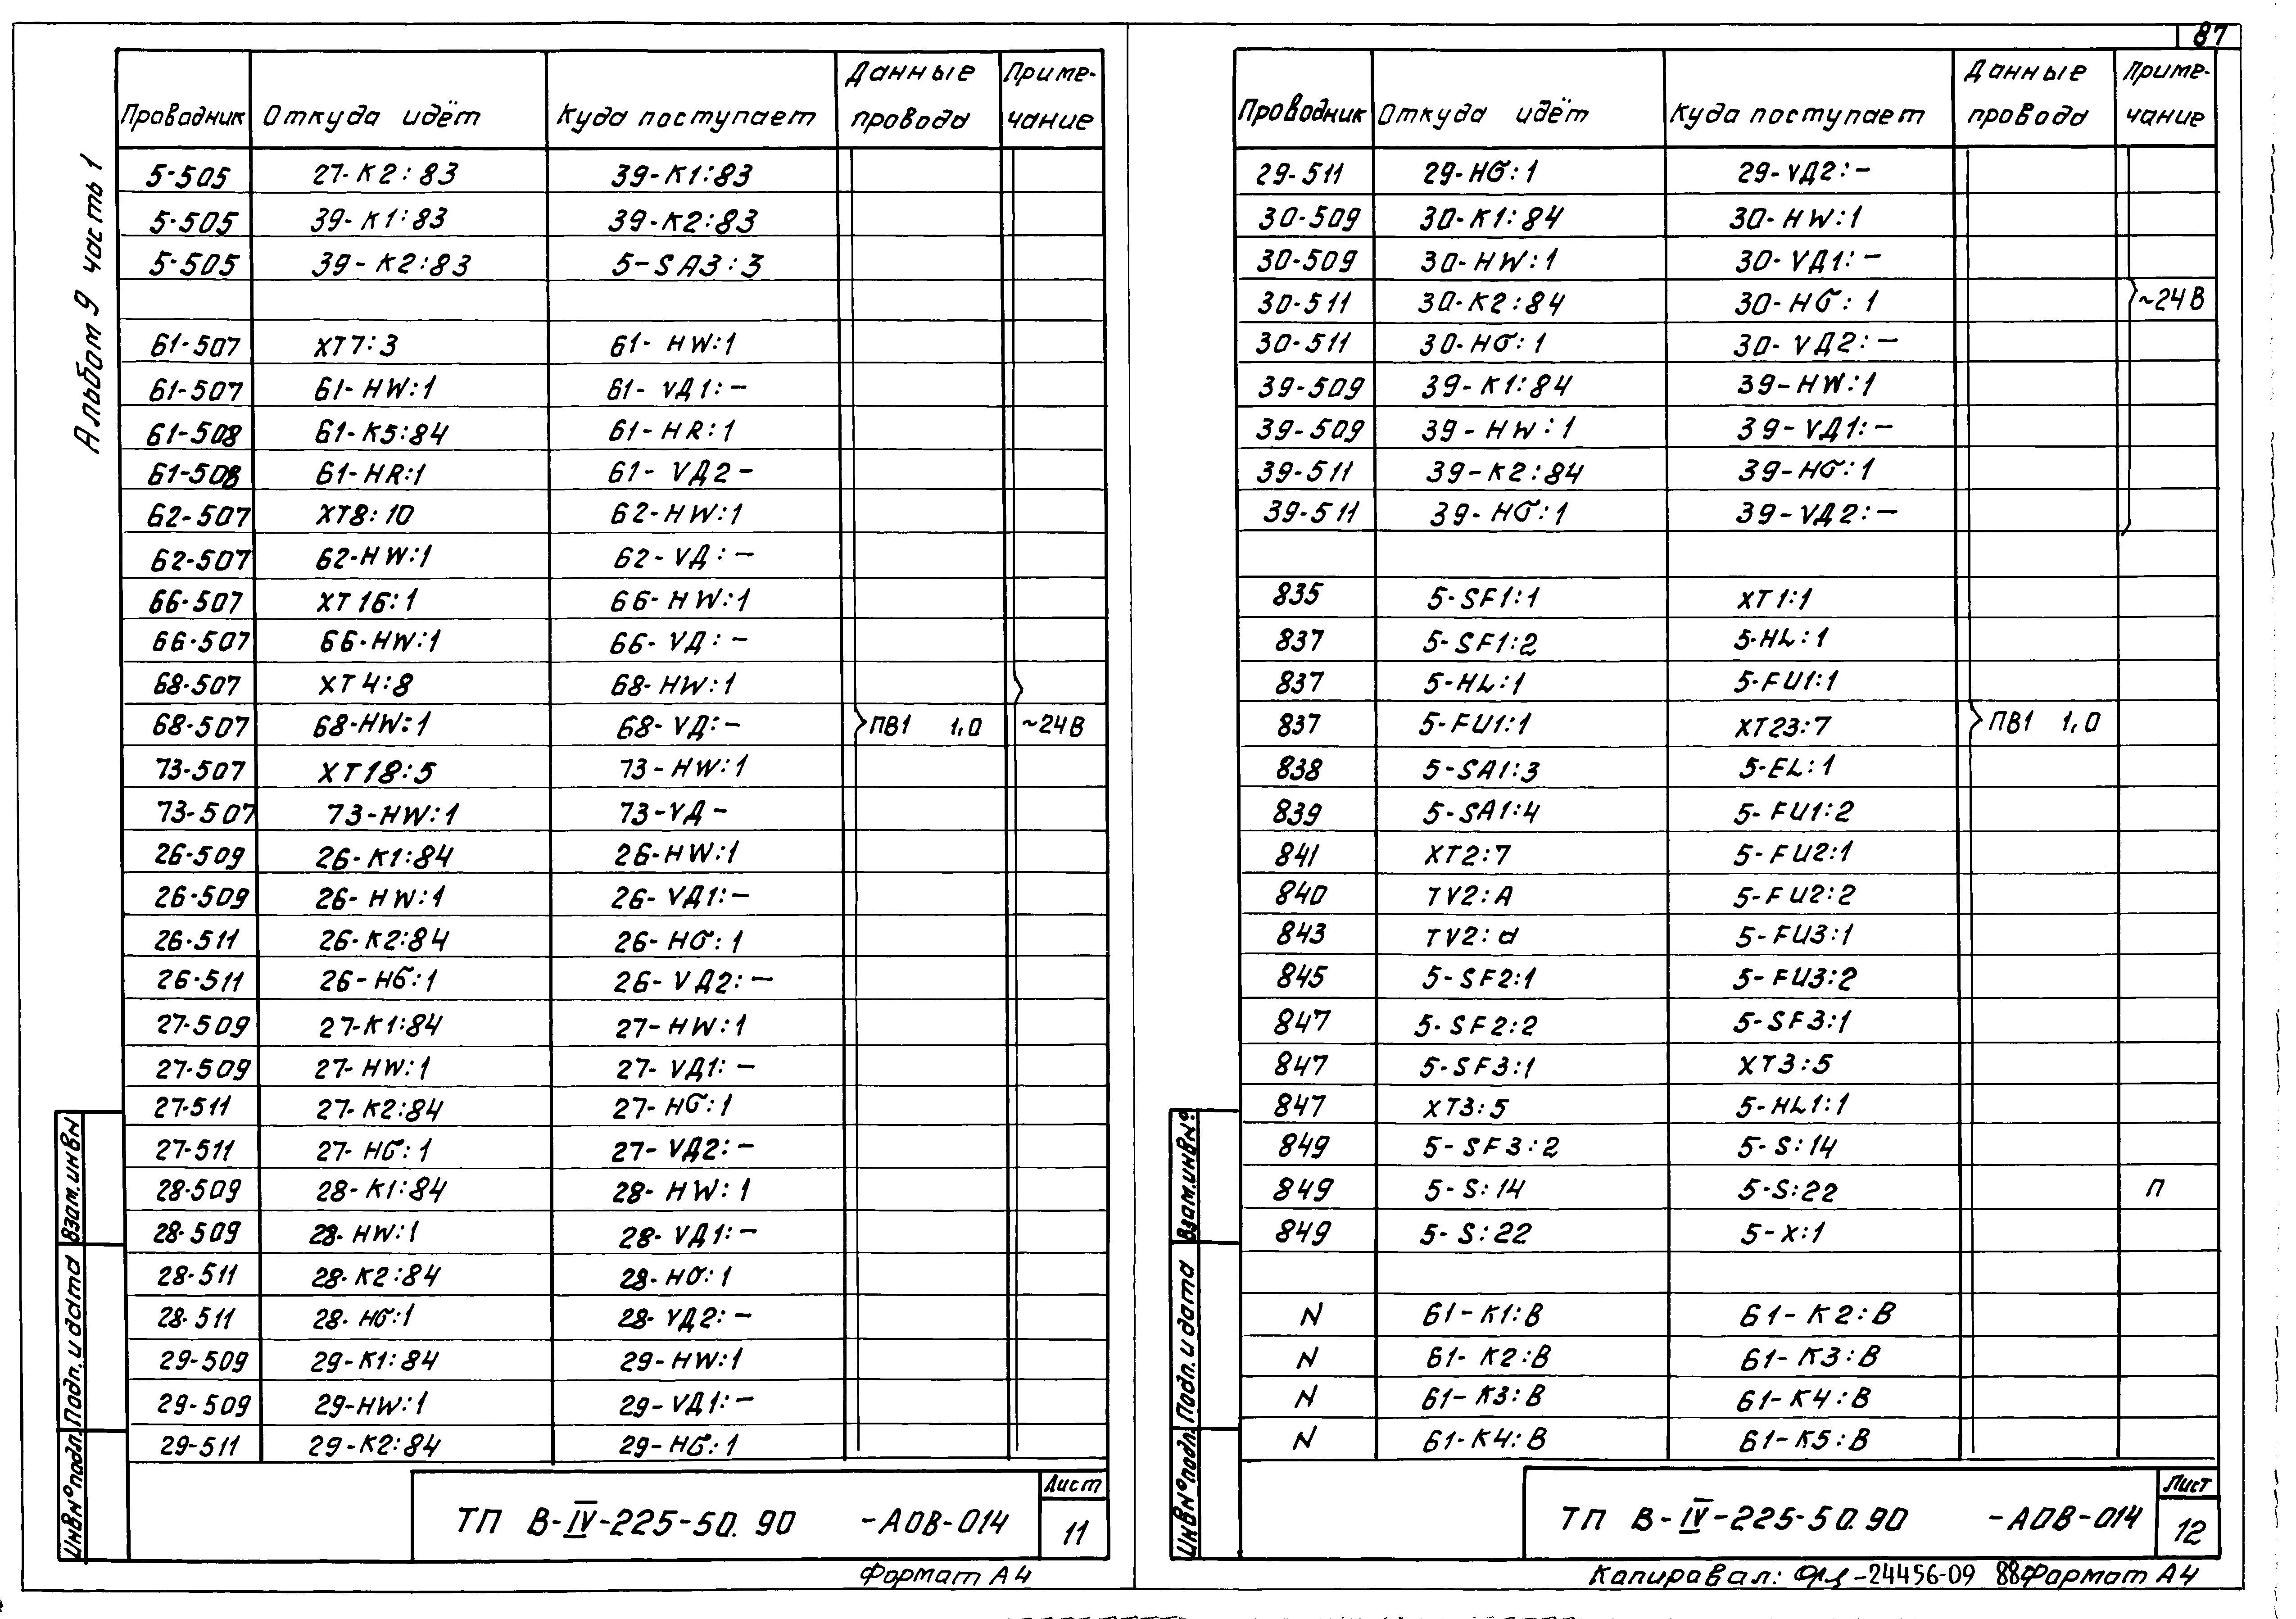 87
Альбом 9 часть 1
Проводник Откуда идёт Куда поступает Данные провода Приме-чание
5-505 27-К2:83 39-К1:83
5-505 39-К1:83 39-К2:83
5-505 39-К2:83 5-SA3:3
61-507 XT7:3 61-HW:1
61-507 61-HW:1 61-VД1:-
61-508 61-К5:84 61-HR:1
61-508 61-HR:1 61-VД2-
62-507 XT8:10 62-HW:1
62-507 62-HW:1 62-VД:-
66-507 XT16:1 66-HW:1
66-507 66-HW:1 66-VД:-
68-507 XT4:8 68-HW:1
68-507 68-HW:1 68-VД:- ПВ1 1,0 ~24В
73-507 XT18:5 73-HW:1
73-507 73-HW:1 73-VД-
26-509 26-К1:84 26-HW:1
26-509 26-HW:1 26-VД1:-
26-511 26-К2:84 26-HG:1
26-511 26-HG:1 26-VД2:-
27-509 27-К1:84 27-HW:1
27-509 27-HW:1 27-VД1:-
27-511 27-К2:84 27-HG:1
27-511 27-HG:1 27-VД2:-
28-509 28-К1:84 28-HW:1
28-509 28-HW:1 28-VД1:-
28-511 28-К2:84 28-HG:1
28-511 28-HG:1 28-VД2:-
29-509 29-К1:84 29-HW:1
29-509 29-HW:1 29-VД1:-
29-511 29-К2:84 29-HG:1
Взам.инвN
Подп. и дата
ИнвN°подл.
ТП В-IV-225-50.90 -АОВ-014
Лист
11
Формат А4
Проводник Откуда идёт Куда поступает Данные провода Приме-чание
29-511 29-HG:1 29-VД2:-
30-509 30-К1:84 30-HW:1
30-509 30-HW:1 30-VД1:-
30-511 30-К2:84 30-HG:1 ~24В
30-511 30-HG:1 30-VД2:-
39-509 39-К1:84 39-HW:1
39-509 39-HW:1 39-VД1:-
39-511 39-К2:84 39-HG:1
39-511 39-HG:1 39-VД2:-
835 5-SF1:1 XT1:1
837 5-SF1:2 5-HL:1
837 5-HL:1 5-FU1:1
837 5-FU1:1 XT23:7 ПВ1 1,0
838 5-SA1:3 5-EL:1
839 5-SA1:4 5-FU1:2
841 XT2:7 5-FU2:1
840 TV2:A 5-FU2:2
843 TV2:а 5-FU3:1
845 5-SF2:1 5-FU3:2
847 5-SF2:2 5-SF3:1
847 5-SF3:1 XT3:5
847 XT3:5 5-HL1:1
849 5-SF3:2 5-S:14
849 5-S:14 5-S:22 П
849 5-S:22 5-X:1
N 61-К1:В 61-К2:В
N 61-К2:В 61-К3:В
N 61-К3:В 61-К4:В
N 61-К4:В 61-К5:В
Взам.инвN°
Подп. и дата
ИнвN°подл.
ТП В-IV-225-50.90 -АОВ-014
Лист
12
Копировал: -24456-09 88 Формат А4